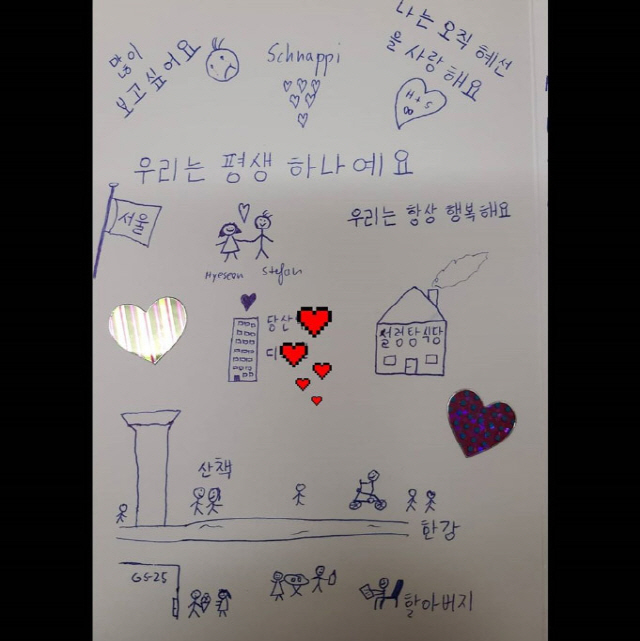 많이
보고싶어요
Schnappi
나는 오직 혜선
을 사랑해요
H+S
∞
우리는 평생 하나예요
서울
우리는 항상 행복해요
Hyeseon
Stefan
당산
디
설렁탕식당
산책
한강
GS25
할아버지